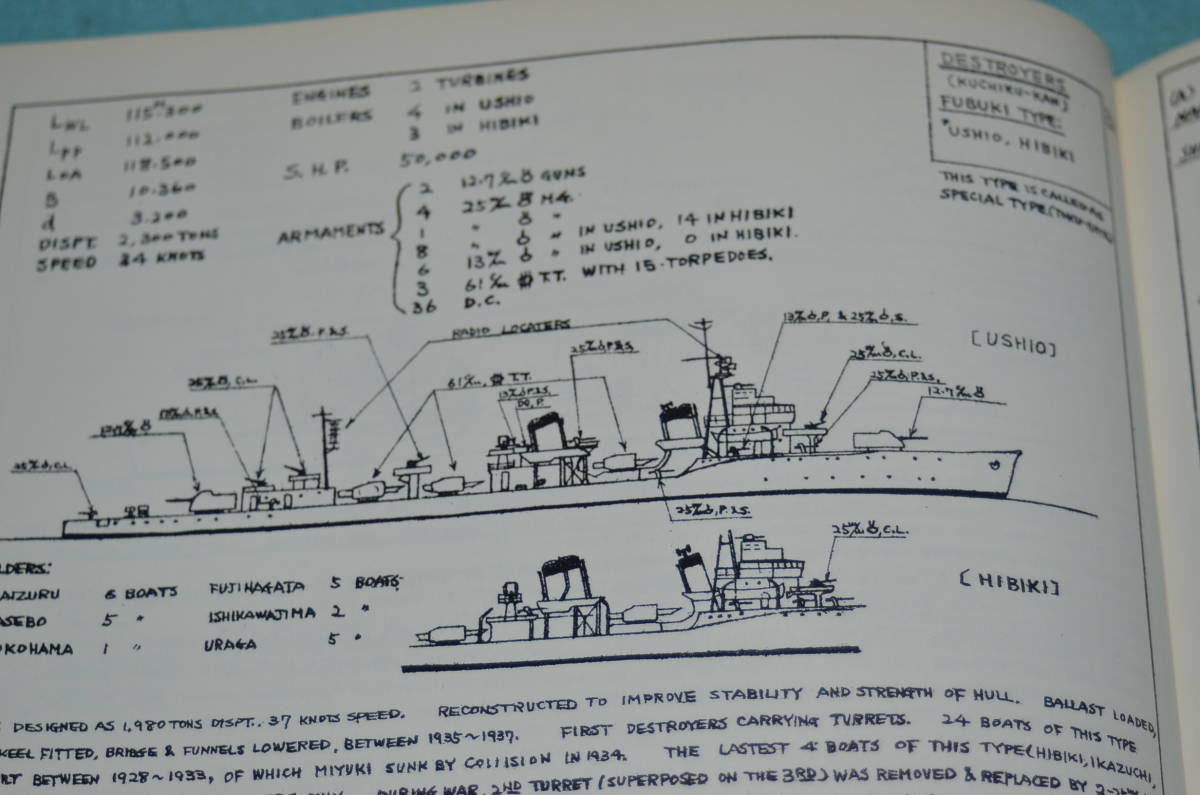 L WL 115.M300 ENGINES 2 TURBINES
L PP 112.000 BOILERS 4 IN USHIO
3 IN HIBIKI
L OA 118.500 S.H.P. 50,000
B 10.360
d 3.200
DISPT. 2,300 TONS
SPEED 34 KNOTS
ARMAMENTS
2 12.7 GUNS
4 25 M.G.
1 " "
8 " " IN USHIO, 14 IN HIBIKI
6 13 " IN USHIO, 0 IN HIBIKI.
3 61 T.T. WITH 15-TORPEDOES.
36 D.C.
DESTROYERS
(KUCHIKU-KAN)
FUBUKI TYPE:
"USHIO, HIBIKI
THIS TYPE IS CALLED AS
SPECIAL TYPE
[USHIO]
RADIO LOCATERS
25 P.&S.
25 P.&S.
13 P. & 25 S.
25 C.L.
25 P.&S.
12.7
25 C.L.
61 T.T.
13 P.&S.
DO, P.
P.&S.
12.7
25 C.L.
25 P.&S.
25 C.L.
[HIBIKI]
LDERS:
AIZURU 6 BOATS FUJINAGATA 5 BOATS
ASEBO 5 " ISHIKAWAJIMA 2 "
OKOHAMA 1 " URAGA 5 "
DESIGNED AS 1,980 TONS DISPT. 37 KNOTS SPEED. RECONSTRUCTED TO IMPROVE STABILITY AND STRENGTH OF HULL. BALLAST LOADED,
KEEL FITTED, BRIDGE & FUNNELS LOWERED, BETWEEN 1935~1937. FIRST DESTROYERS CARRYING TURRETS. 24 BOATS OF THIS TYPE
LT BETWEEN 1928~1933, OF WHICH MIYUKI SUNK BY COLLISION IN 1934. THE LASTEST 4 BOATS OF THIS TYPE (HIBIKI, IKAZUCHI,
DURING WAR, 2ND TURRET (SUPERPOSED ON THE 3RD) WAS REMOVED & REPLACED BY